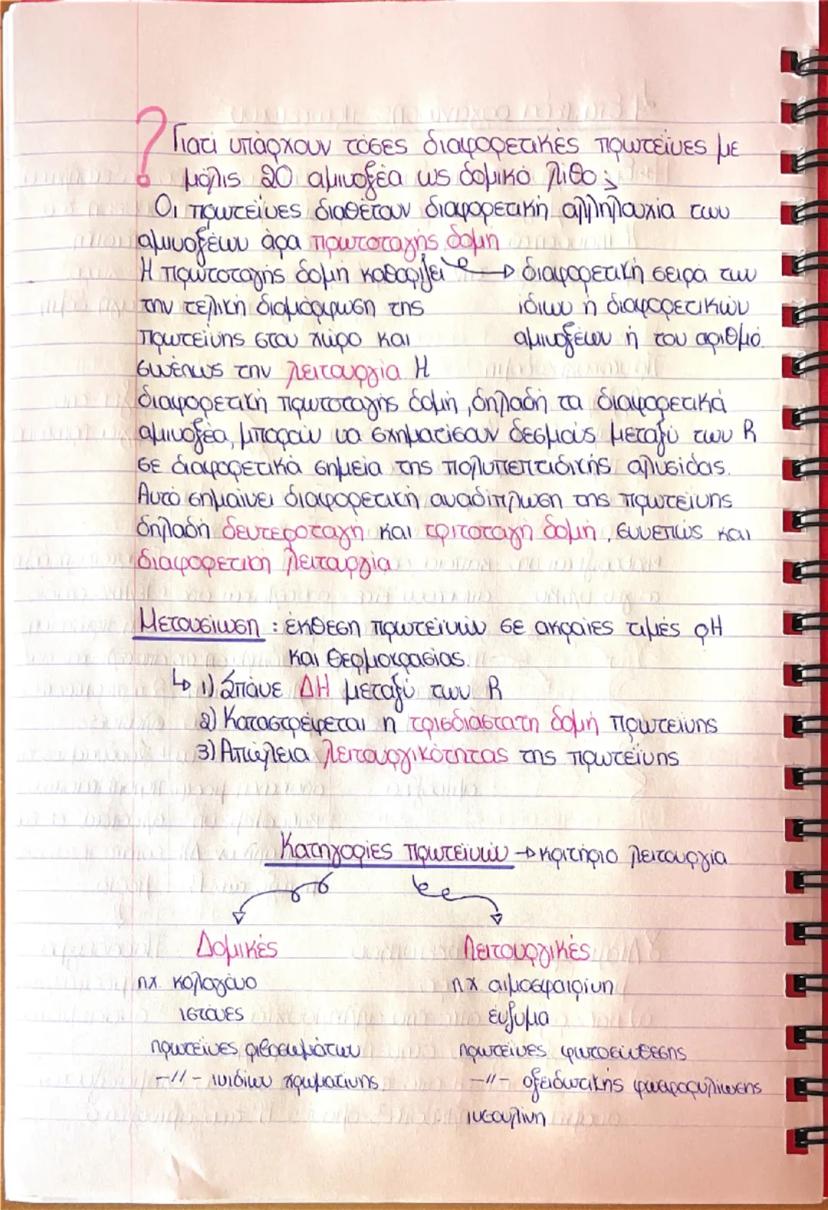 ? Γιατί υπάρχουν τόσες διαφορετικές πρωτεΐνες με
μόλις 20 αμινοξέα ως δομικό λίθο;
Οι πρωτεΐνες διαθέτουν διαφορετική αλληλουχία των
αμινοξέων άρα πρωτοταγής δομή
Η πρωτοταγής δομή καθορίζει → διαφορετική σειρά των
την τελική διαμόρφωση της ίδιων ή διαφορετικών
πρωτεΐνης στον χώρο και αμινοξέων ή του αριθμό.
συνεπώς την λειτουργία Η
διαφορετική πρωτοταγής δομή, δηλαδή τα διαφορετικά
αμινοξέα, μπορούν να σχηματίσουν δεσμούς μεταξύ των R
σε διαφορετικά σημεία της πολυπεπτιδικής αλυσίδας.
Αυτό σημαίνει διαφορετική αναδίπλωση της πρωτεΐνης
δηλαδή δευτεροταγή και τριτοταγή δομή, συνεπώς και
διαφορετική λειτουργία
Μετουσίωση : έκθεση πρωτεϊνών σε ακραίες τιμές pH
και θερμοκρασίας.
↳ 1) Σπάνε ΔΗ μεταξύ των R
2) Καταστρέφεται η τρισδιάστατη δομή πρωτεΐνης
3) Απώλεια λειτουργικότητας της πρωτεΐνης
Κατηγορίες πρωτεϊνών → κριτήριο λειτουργία
Δομικές Λειτουργικές
πχ κολαγόνο πχ αιμοσφαιρίνη
ιστόνες ένζυμα
πρωτεΐνες ριβοσωμάτων πρωτεΐνες φωτοσύνθεσης
-//- ινιδίων χρωματίνης -//- οξειδωτικής φωσφορυλίωσης
ινσουλίνη